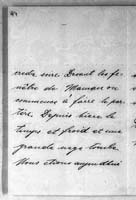 entre eux. Devant les fe-
nêtre de Maman on
commence à faire le par-
terre. Depuis hiere le
temps est froid et une
grande neige tombe.
Nous étions aujourd'hui